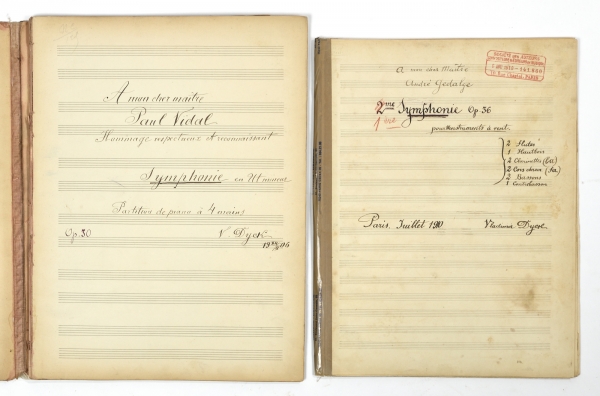 A mon cher maître
Paul Vidal
Hommage respectueux et reconnaissant
Symphonie en Ut mineur
Partition de piano à 4 mains
Op. 30
V. Dyck
A mon cher Maître
André Gedalge
2me Symphonie Op 36
1ère
pour Instruments à vent.
2 Flûtes
1 Hautbois
2 Clarinettes
2 Cors
2 Bassons
1 Contrebasson
Paris. Juillet 1910
Vladimir Dyck